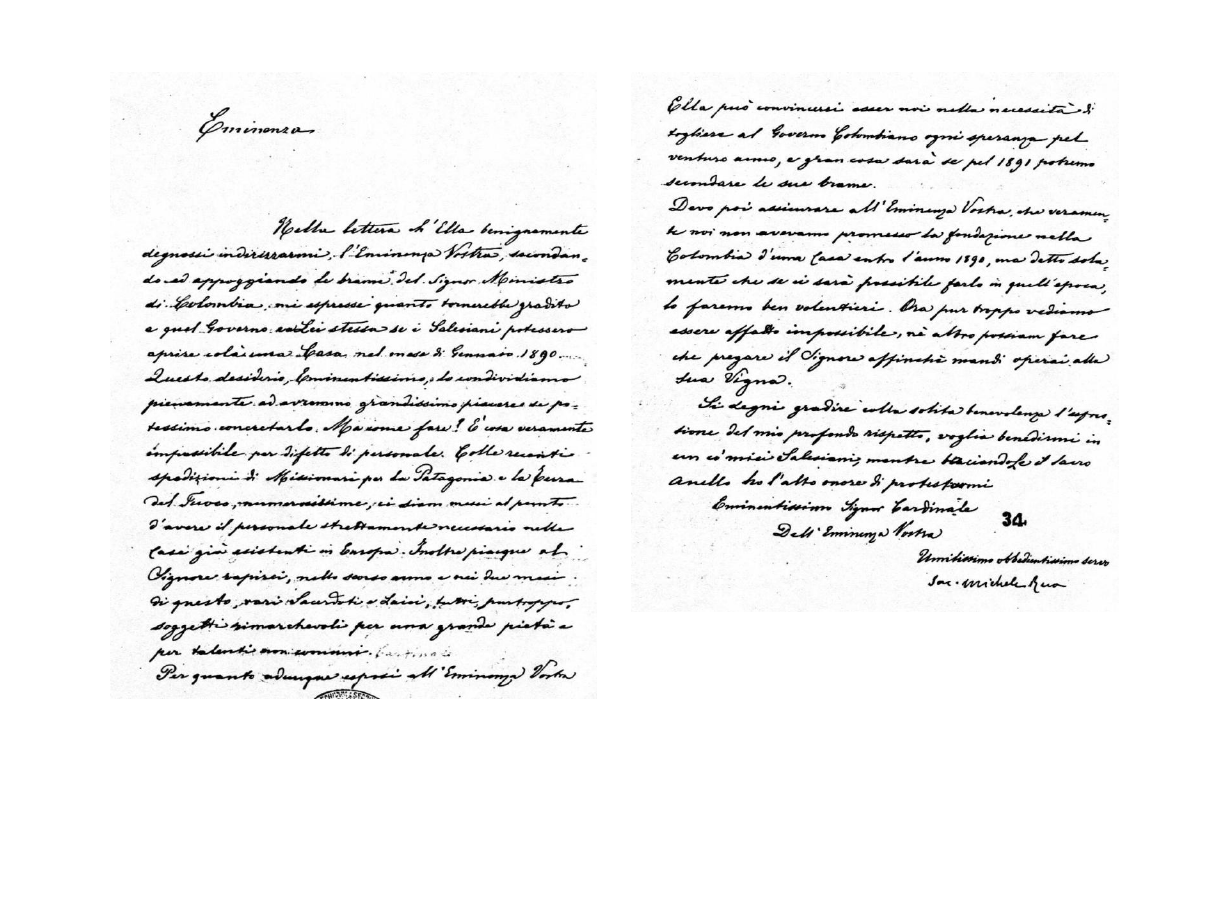 Eminenza
Nella lettera ch'Ella benignamente
degnossi indirizzarmi, l'Eminenza Vostra, secondan-
do ed appoggiando le brame del Signor Ministro
di Colombia, mi espresse quanto tornerebbe gradito
a quel Governo e a Lei stessa se i Salesiani potessero
aprire colà una Casa nel mese di Gennaio 1890.
Questo desiderio, Eminentissimo, lo condividiamo
pienamente ed avremmo grandissimo piacere se po-
tessimo concretarlo. Ma come fare? È cosa veramente
impossibile per difetto di personale. Colle recenti
spedizioni di Missionari per la Patagonia e la Terra
del Fuoco, numerosissime, ci siam messi al punto
d'avere il personale strettamente necessario nelle
Case già esistenti in Europa. Inoltre piacque al
Signore rapirci, nello scorso anno e nei due mesi
di questo, vari Sacerdoti e Laici, tutti, purtroppo,
soggetti rimarchevoli per una grande pietà e
per talenti non comuni.
Per quanto adunque esposi all'Eminenza Vostra
Ella può convincersi esser noi nella necessità di
togliere al Governo Colombiano ogni speranza pel
venturo anno, e gran cosa sarà se pel 1891 potremo
secondare le sue brame.
Devo poi assicurare all'Eminenza Vostra, che veramen-
te noi non avevamo promesso la fondazione nella
Colombia d'una Casa entro l'anno 1890, ma detto sola-
mente che se ci sarà possibile farlo in quell'epoca,
lo faremo ben volentieri. Ora pur troppo vediamo
essere affatto impossibile, nè altro possiam fare
che pregare il Signore affinchè mandi operai alla
sua Vigna.
Si degni gradire colla solita benevolenza l'espres-
sione del mio profondo rispetto, voglia benedirmi in
un co' miei Salesiani, mentre baciandoLe il sacro
Anello ho l'alto onore di protestarmi
Eminentissimo Signor Cardinale
34.
Dell'Eminenza Vostra
Umilissimo Obbedientissimo servo
Sac. Michele Rua